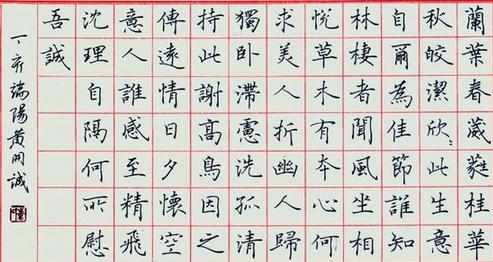 蘭葉春葳蕤桂華
秋皎潔欣〻此生意
自爾為佳節誰知
林棲者聞風坐相
悅草木有本心何
求美人折幽人歸
獨臥滯慮洗孤清
持此謝高鳥因之
傳遠情日夕懷空
意人誰感至精飛
沈理自隔何所慰
吾誠
丁亥端陽黃開誠